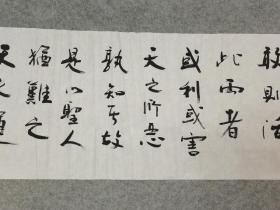 敢則活
此兩者
或利或害
天之所惡
孰知其故
是以聖人
猶難之
天之道